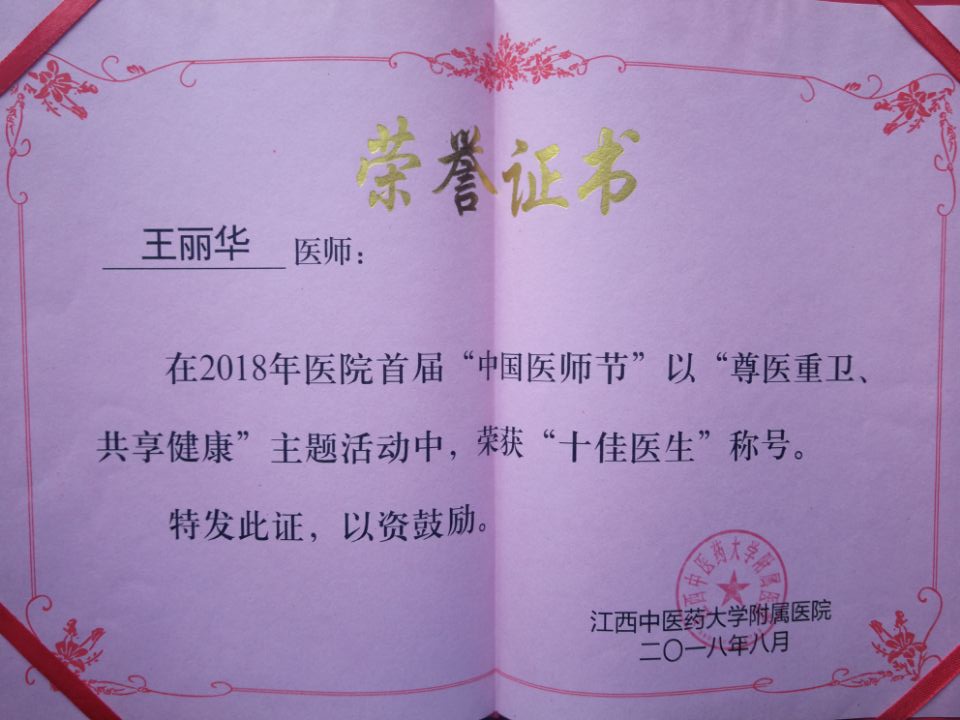 荣誉证书
王丽华 医师：
在2018年医院首届“中国医师节”以“尊医重卫、
共享健康”主题活动中，荣获“十佳医生”称号。
特发此证，以资鼓励。
江西中医药大学附属医院
江西中医药大学附属医院
二〇一八年八月